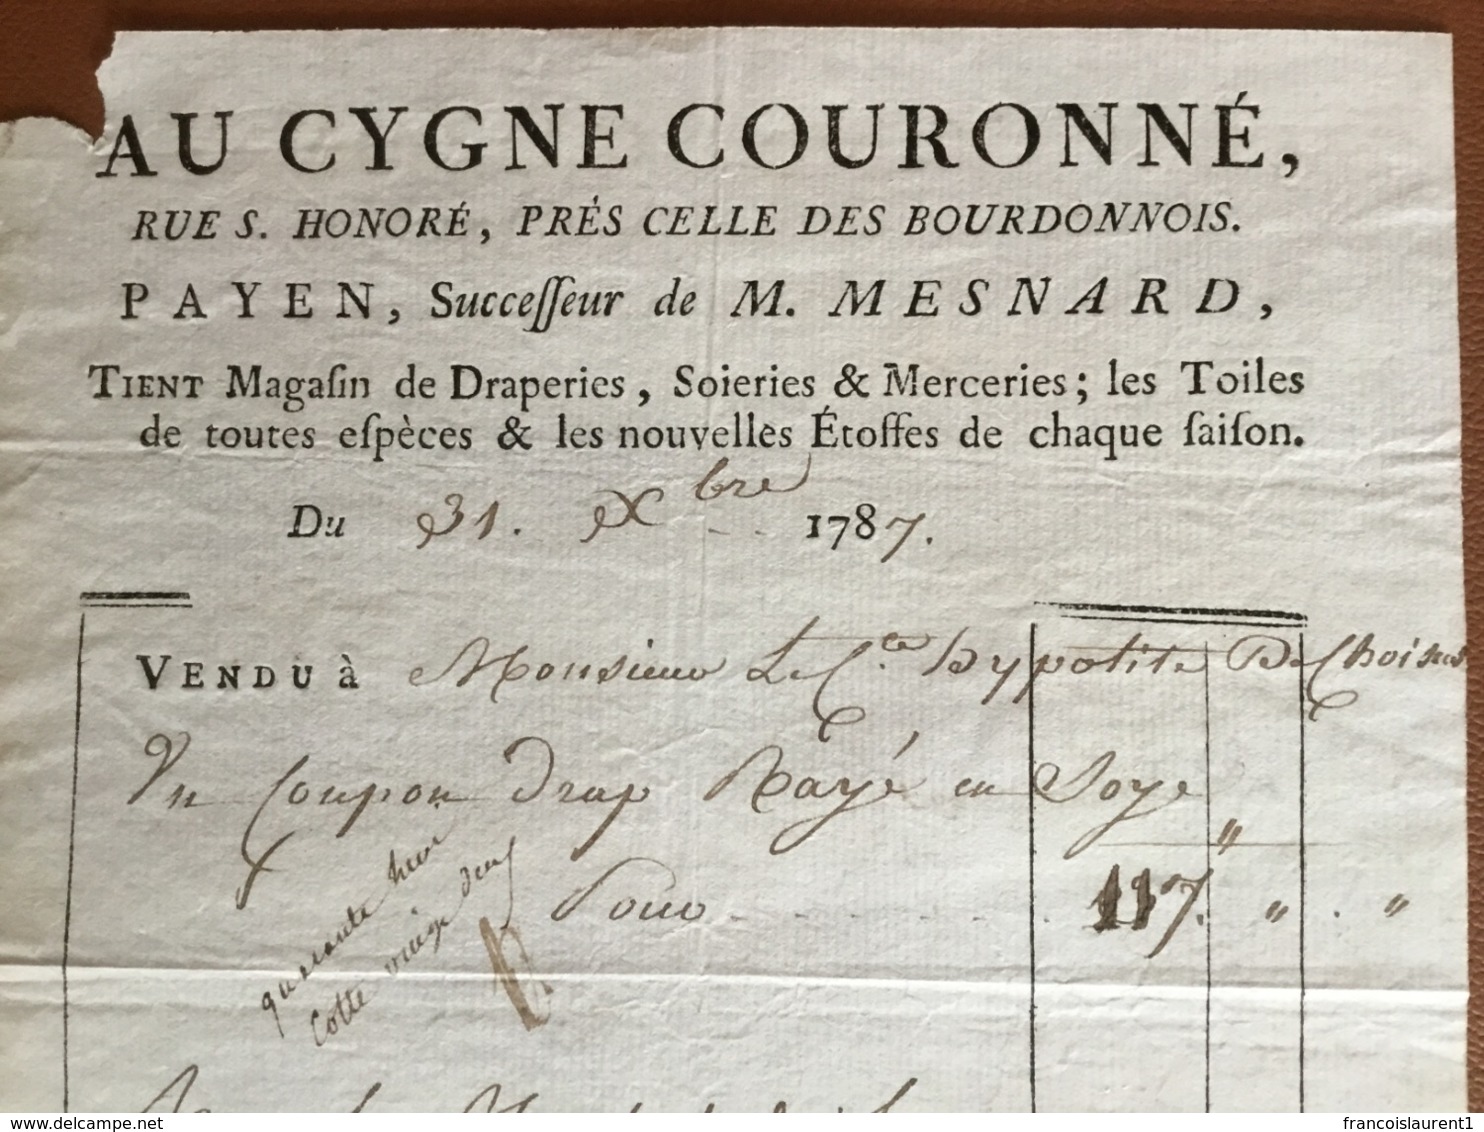 AU CYGNE COURONNÉ,
RUE S. HONORÉ, PRÉS CELLE DES BOURDONNOIS.
PAYEN, Succeſſeur de M. MESNARD,
TIENT Magaſin de Draperies, Soieries & Merceries; les Toiles
de toutes eſpèces & les nouvelles Étoffes de chaque ſaiſon.
Du 31. Xbre 1787.
VENDU à Monsieur Le Cte hypolite De Choiseul
Un Coupon Drap Rayé en Soye
"
Pour 117. " . "
quarante neuf
Cotte vingt deux
delcampe.net
francoislaurent1